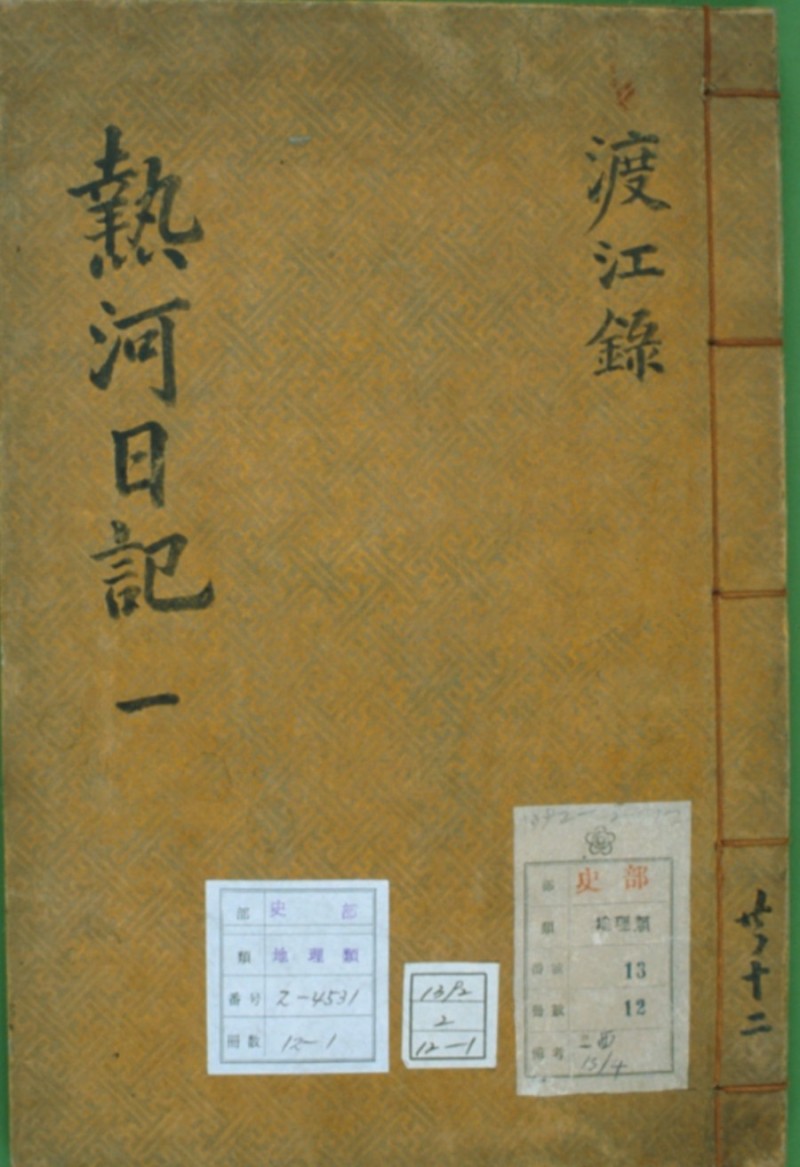 渡江錄
熱河日記 一
共十二
部 史部
類 地理類
番号 2-4531
冊数 12-1
1312
2
12-1
部 史部
類 地理類
番號 13
冊數 12
備考
13/4